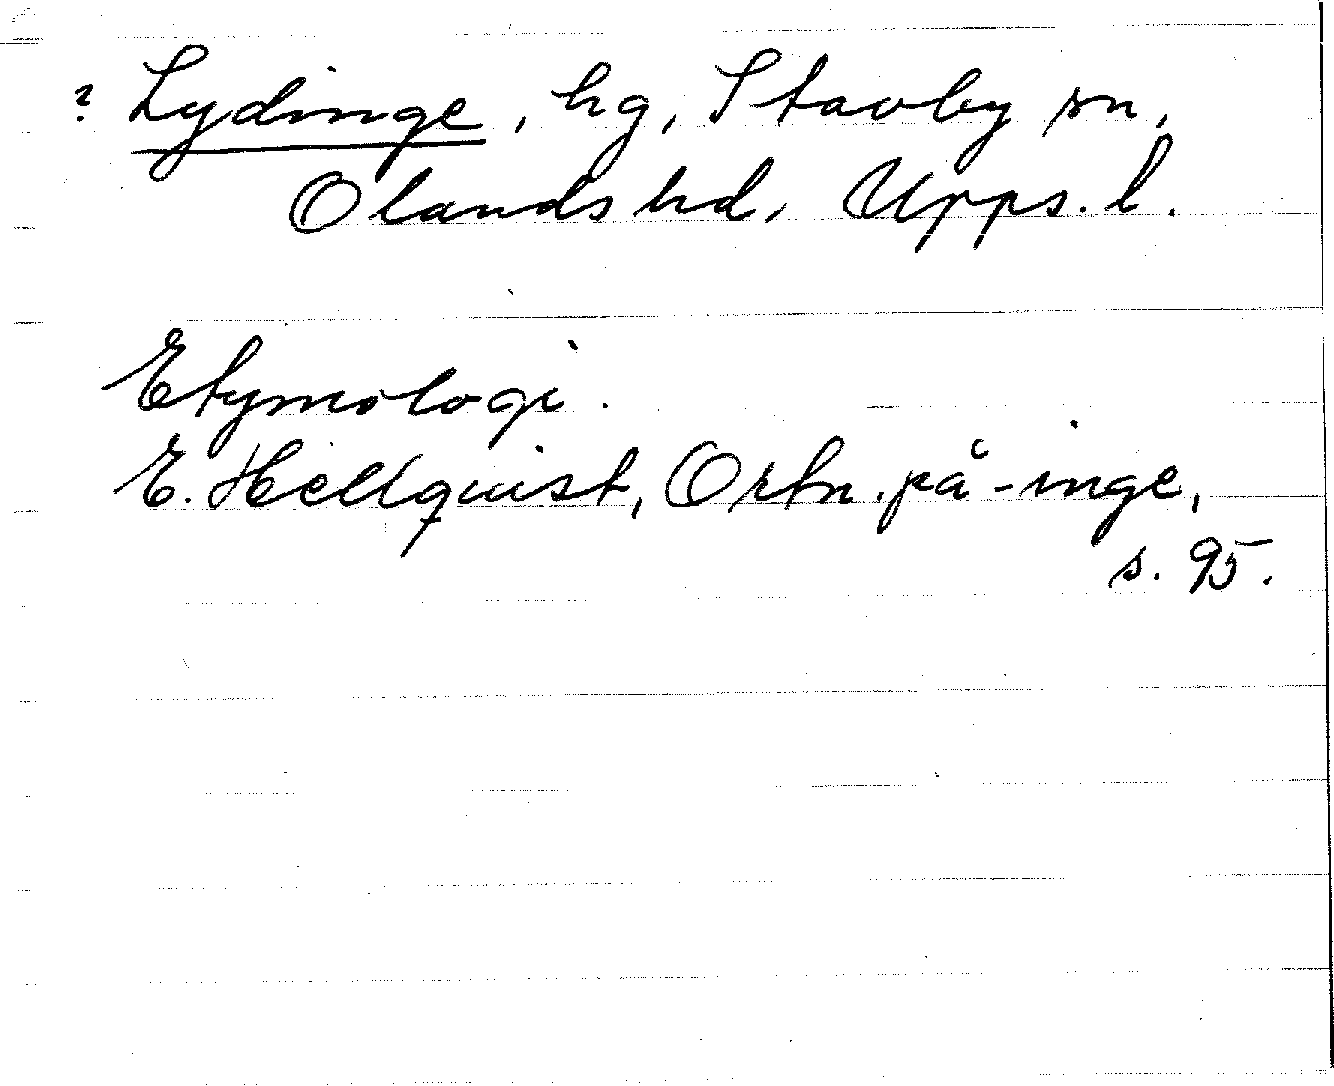 ? Lydinge, hg, Stavby sn,
Olands hd, Upps. l.
Etymologi.
E. Hellquist, Ortn. på -inge,
s. 95.